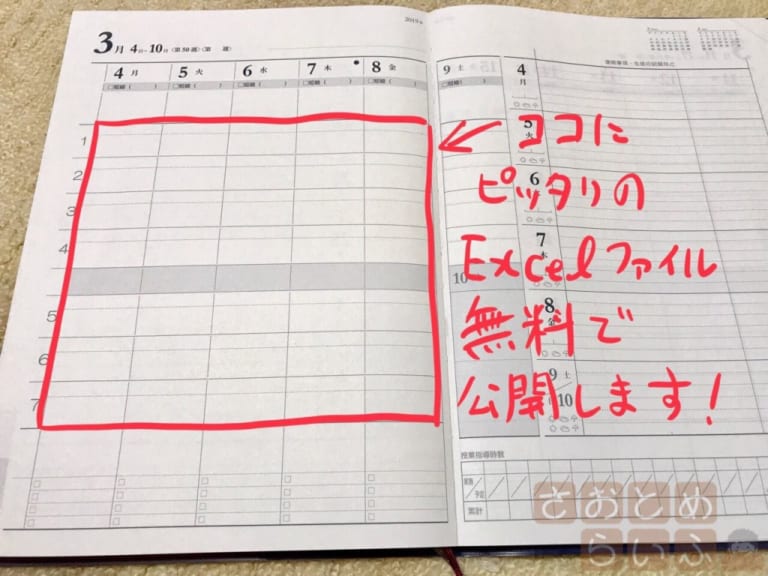 2019年
3月 4日-10日〈第50週〉〈第 週〉
4月 5火 6水 7木 8金
1
2
3
4
5
6
7
9土
10
4月
5火
6
7木
8金
9土
10
ココに
ピッタリの
Excelファイル
無料で
公開します!
授業指導時数
累計
さおとめ
らいふ